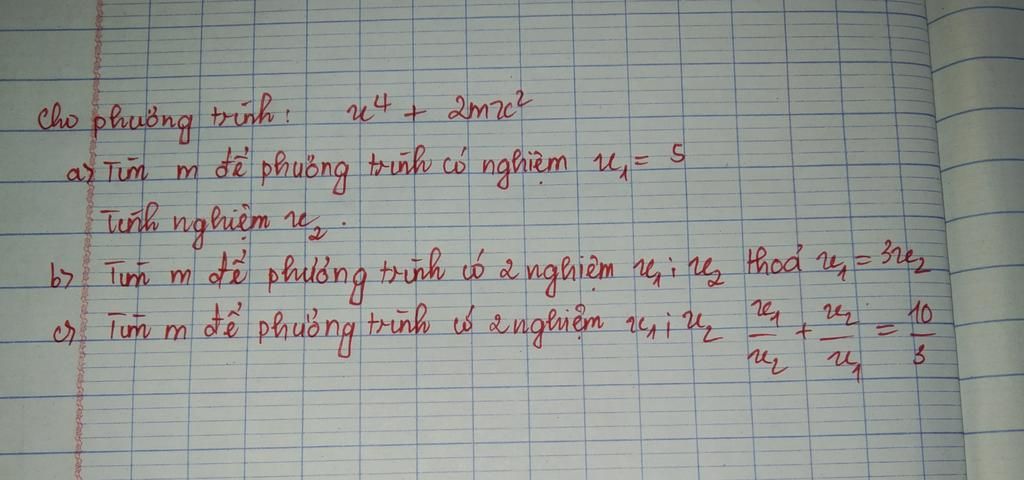 Cho phưởng trình: x⁴ + 2mx²
a) Tìm m để phưởng trình có nghiệm x₁ = 5
Tính nghiệm x₂.
b) Tìm m để phưởng trình có 2 nghiệm x₁; x₂ thoả x₁ = 3x₂
c) Tìm m để phưởng trình có 2 nghiệm x₁; x₂ x₁/x₂ + x₂/x₁ = 10/3